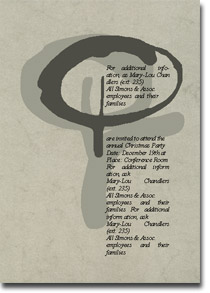 For additional info-
ation, as Mary-Lou Chan
dlers (ext. 235)
All Simons & Assoc.
employees and their
families
are invited to attend the
annual Christmas Party
Date: December 19th at
Place: Conference Room
For additional inform
ation, ask
Mary-Lou Chandlers
(ext. 235)
All Simons & Assoc.
employees and their
families For additional
inform ation, ask
Mary-Lou Chandlers
(ext. 235)
All Simons & Assoc.
employees and their
families